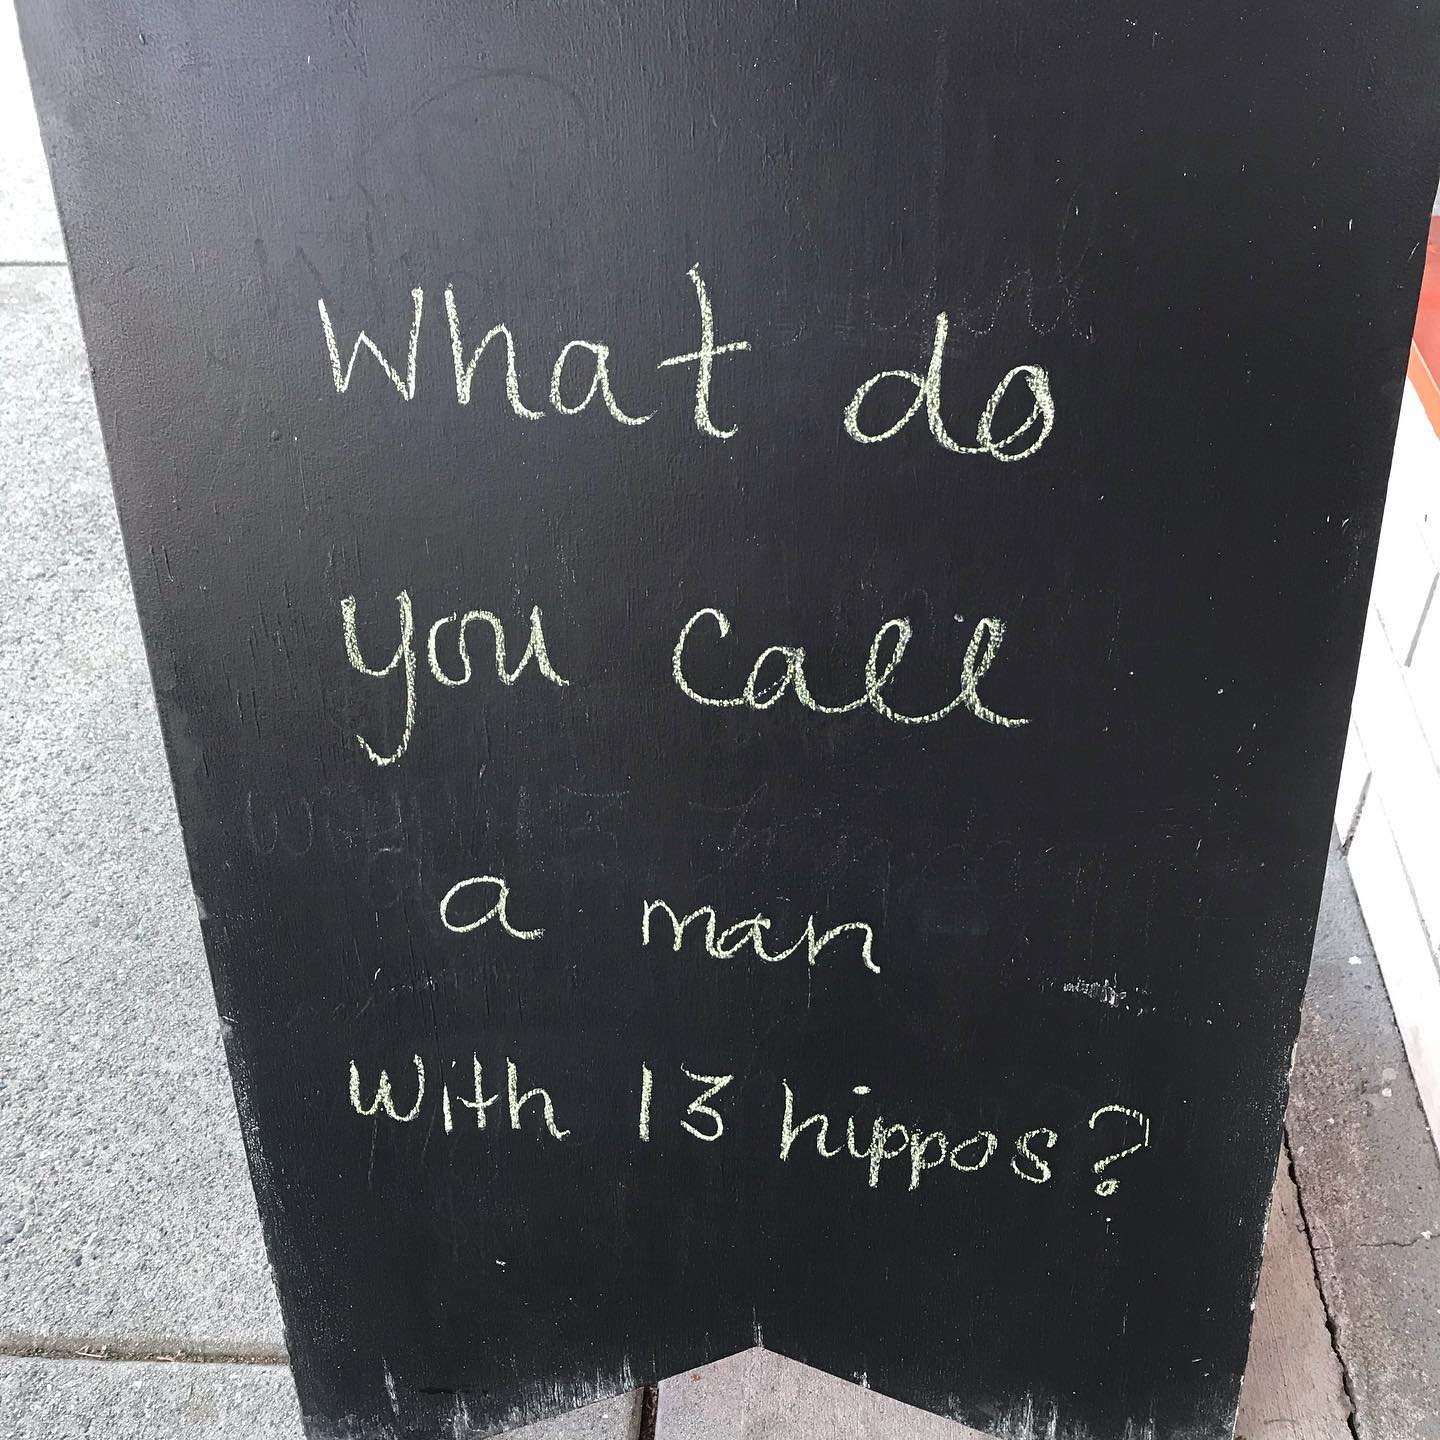 What do
you call
a man
with 13 hippos?